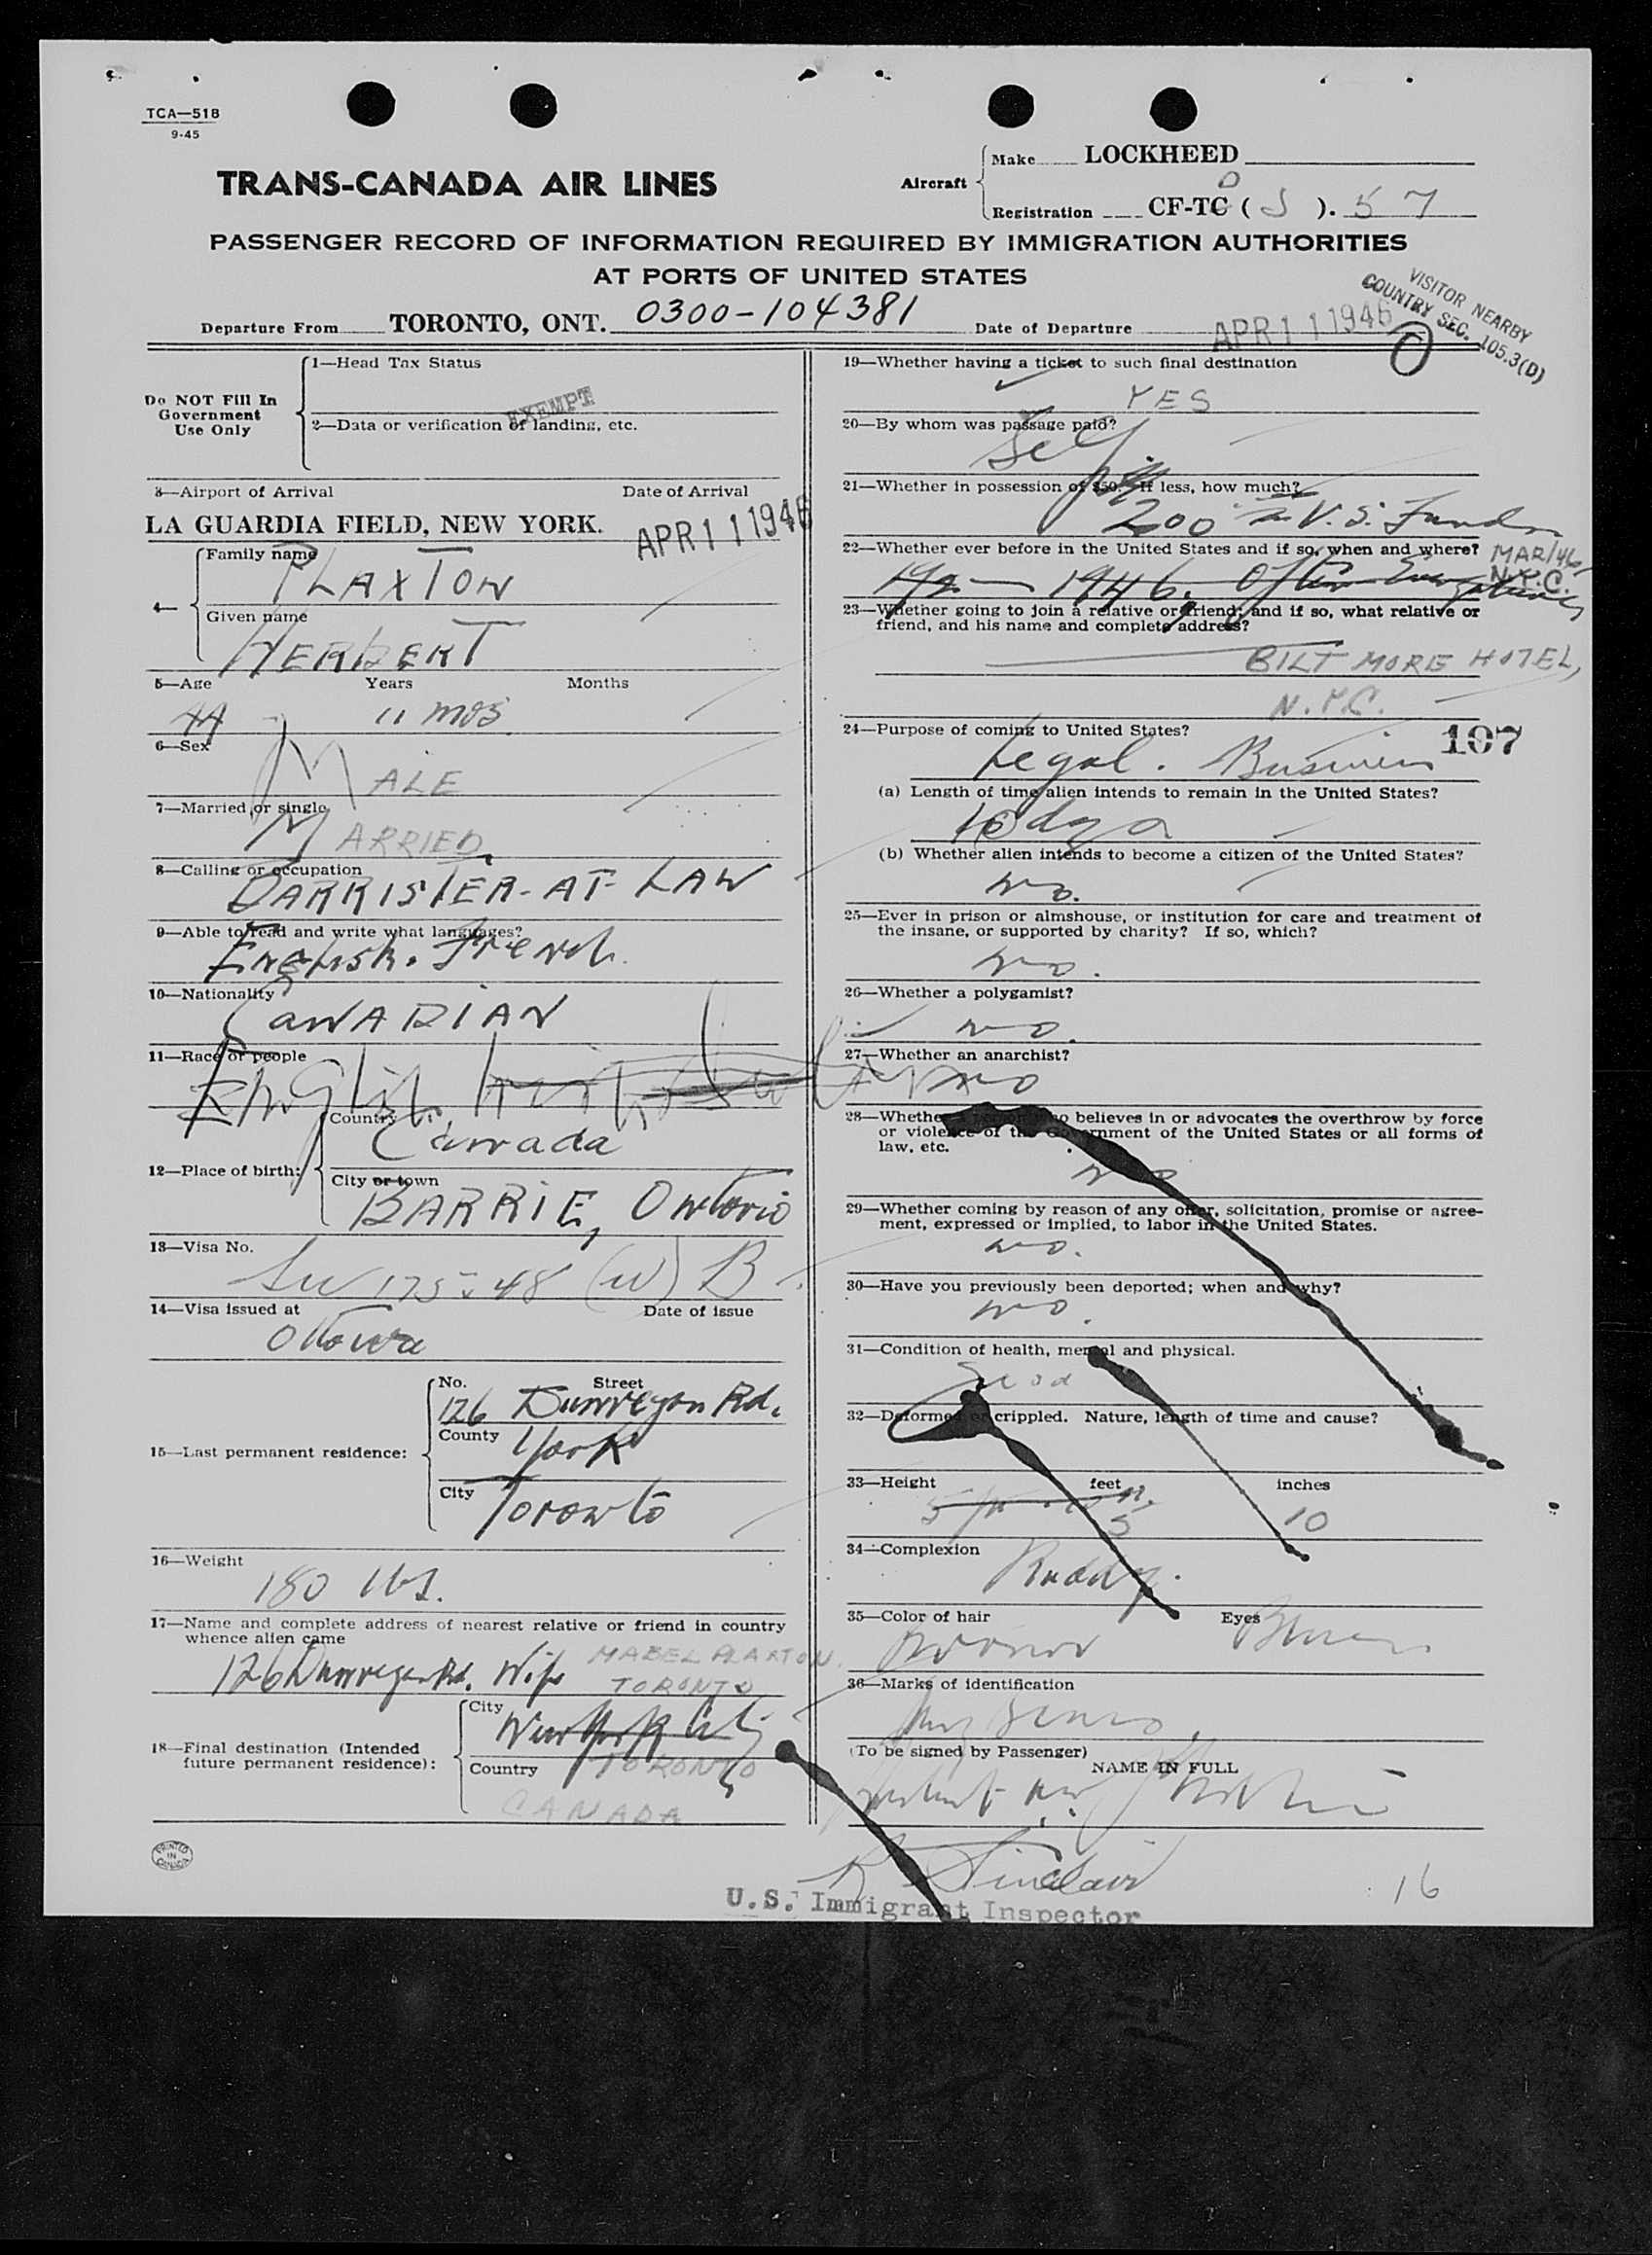 TCA—518
9-45
TRANS-CANADA AIR LINES
Aircraft
Make LOCKHEED
Registration CF-TC D ( J ). 57
PASSENGER RECORD OF INFORMATION REQUIRED BY IMMIGRATION AUTHORITIES
AT PORTS OF UNITED STATES
VISITOR NEARBY
COUNTRY SEC. 105.3(D)
Departure From TORONTO, ONT. 0300-104381 Date of Departure APR 11 1946
Do NOT Fill In
Government
Use Only
1—Head Tax Status
EXEMPT
2—Data or verification of landing, etc.
3—Airport of Arrival Date of Arrival
LA GUARDIA FIELD, NEW YORK. APR 11 1946
4—
Family name
PLAXTON
Given name
HERBERT
5—Age Years Months
44 11 mos
6—Sex
MALE
7—Married or single
MARRIED
8—Calling or occupation
BARRISTER-AT-LAW
9—Able to read and write what languages?
English. French.
10—Nationality
CANADIAN
11—Race or people
English
12—Place of birth:
Country
Canada
City or town
BARRIE, Ontario
13—Visa No.
175 48 (w) B
14—Visa issued at Date of issue
Ottawa
15—Last permanent residence:
No. Street
126 Dunvegan Rd.
County
York
City
Toronto
16—Weight
180 lbs.
17—Name and complete address of nearest relative or friend in country
whence alien came
126 Dunvegan Rd. Wife MABEL PLAXTON
TORONTO
18—Final destination (Intended
future permanent residence):
City
New York City
TORONTO
Country
CANADA
PRINTED
IN
CANADA
19—Whether having a ticket to such final destination
YES
20—By whom was passage paid?
Self
21—Whether in possession of $50. If less, how much?
200 U.S. Funds
22—Whether ever before in the United States and if so, when and where? MAR/46
Yes — 1946. Often N.Y.C.
23—Whether going to join a relative or friend; and if so, what relative or
friend, and his name and complete address?
BILTMORE HOTEL,
N.Y.C.
24—Purpose of coming to United States? 107
Legal. Business
(a) Length of time alien intends to remain in the United States?
10 days
(b) Whether alien intends to become a citizen of the United States?
no.
25—Ever in prison or almshouse, or institution for care and treatment of
the insane, or supported by charity? If so, which?
no.
26—Whether a polygamist?
no.
27—Whether an anarchist?
no
28—Whether believes in or advocates the overthrow by force
or violence of the Government of the United States or all forms of
law, etc.
no
29—Whether coming by reason of any offer, solicitation, promise or agree-
ment, expressed or implied, to labor in the United States.
no.
30—Have you previously been deported; when and why?
no.
31—Condition of health, mental and physical.
Good
32—Deformed or crippled. Nature, length of time and cause?
33—Height feet inches
5 10
34—Complexion
Ruddy.
35—Color of hair Eyes
Brown Brown
36—Marks of identification
(To be signed by Passenger)
NAME IN FULL
Sinclair
U.S. Immigrant Inspector
16